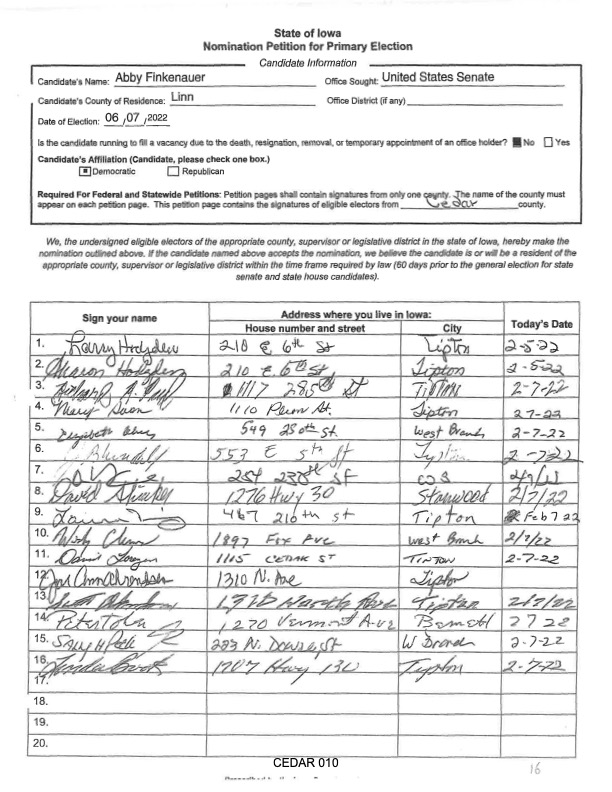 State of Iowa
Nomination Petition for Primary Election
Candidate Information
Candidate's Name: Abby Finkenauer Office Sought: United States Senate
Candidate's County of Residence: Linn Office District (if any)
Date of Election: 06 / 07 / 2022
Is the candidate running to fill a vacancy due to the death, resignation, removal, or temporary appointment of an office holder? No Yes
Candidate's Affiliation (Candidate, please check one box.)
Democratic Republican
Required For Federal and Statewide Petitions: Petition pages shall contain signatures from only one county. The name of the county must
appear on each petition page. This petition page contains the signatures of eligible electors from Cedar county.
We, the undersigned eligible electors of the appropriate county, supervisor or legislative district in the state of Iowa, hereby make the
nomination outlined above. If the candidate named above accepts the nomination, we believe the candidate is or will be a resident of the
appropriate county, supervisor or legislative district within the time frame required by law (60 days prior to the general election for state
senate and state house candidates).
Sign your name Address where you live in Iowa: Today's Date
House number and street City
1. Larry Hodgden 210 E 6th St Tipton 2-5-22
2. Sharon Hodgden 210 E. 6th St. Tipton 2-5-22
3. Richard A. 1117 285th St Tipton 2-7-22
4. Mary 1110 Plum St. Tipton 2-7-22
5. Elizabeth 549 250th St. West Branch 2-7-22
6. 553 E 5th St Tipton 2-7-22
7. 254 St
8. David 1276 Hwy 30 Stanwood 2/7/22
9. 467 210th st Tipton Feb 7 22
10. 1897 Fox Ave West Branch 2/7/22
11. David 1115 CEDAR ST TIPTON 2-7-22
12. Ann 1310 N. Ave Tipton
13. Tipton 2/7/22
14. Peter 1270 Vermont Ave 2 7 22
15. N. St W Branch 2-7-22
16. 1707 Hwy 130 Tipton 2-7-22
17.
18.
19.
20.
CEDAR 010
16